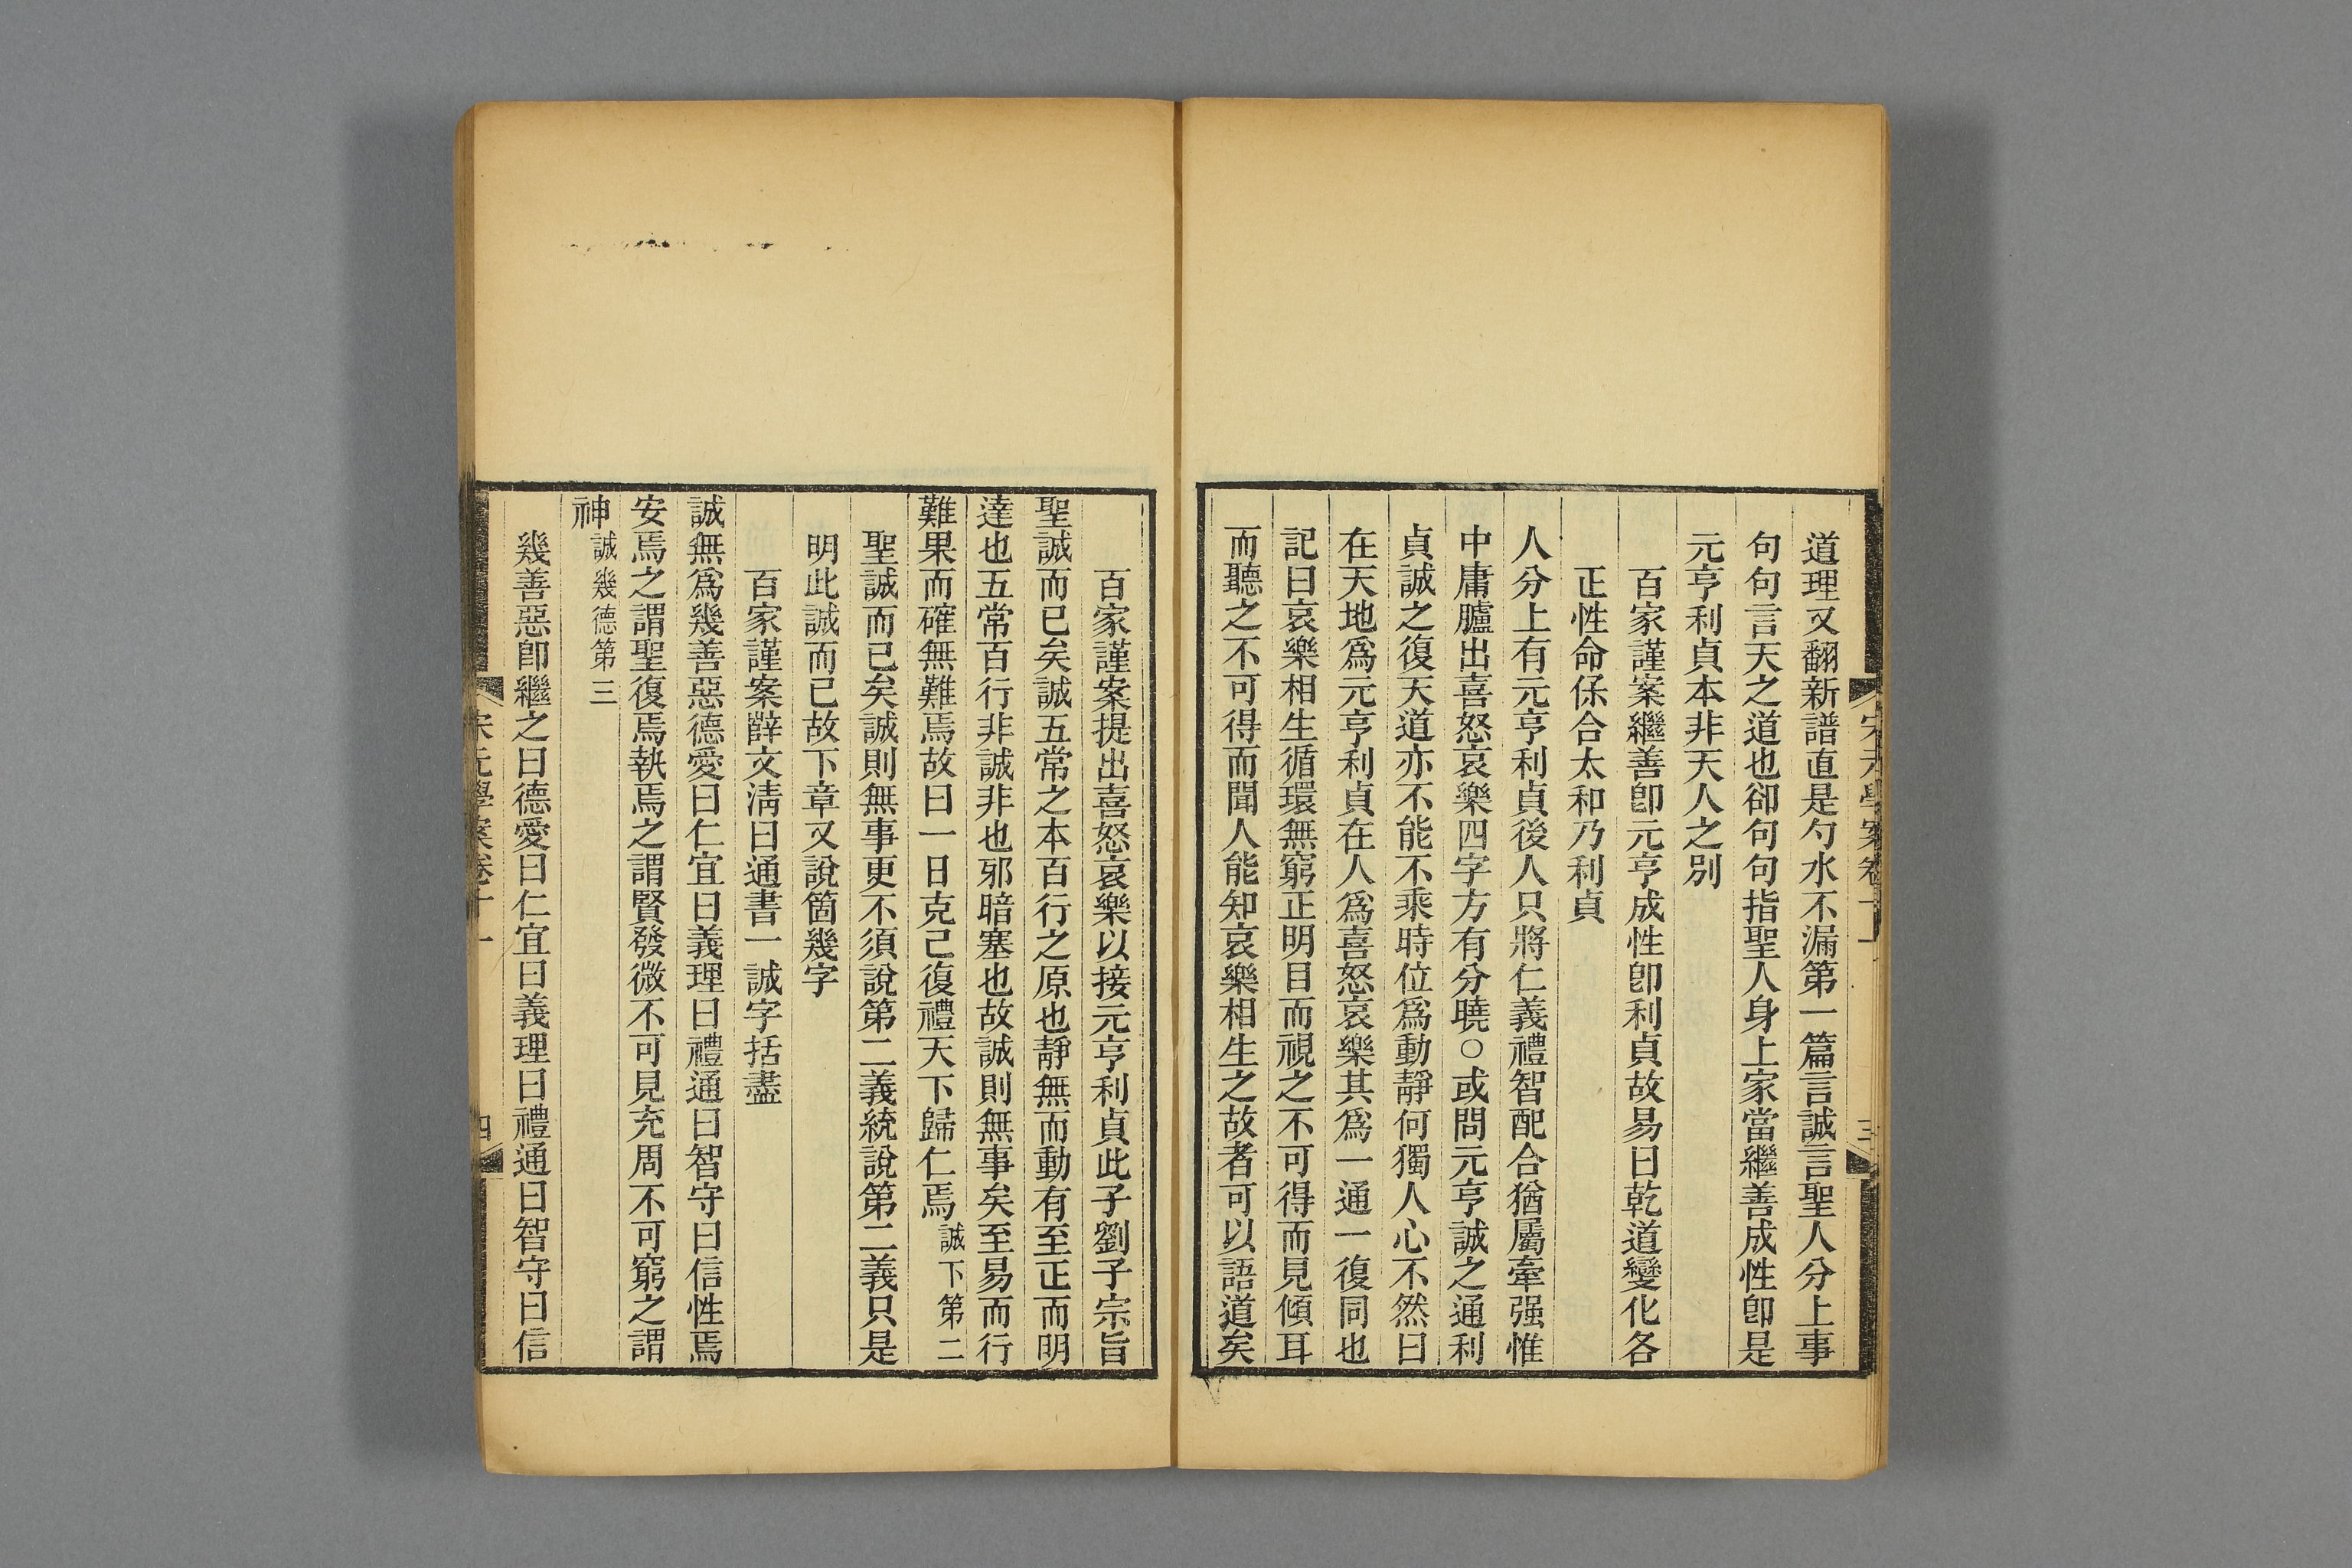 宋元學案卷十一
三
道理又翻新譜直是勺水不漏第一篇言誠言聖人分上事
句句言天之道也卻句句指聖人身上家當繼善成性卽是
元亨利貞本非天人之別
百家謹案繼善卽元亨成性卽利貞故易曰乾道變化各
正性命保合太和乃利貞
人分上有元亨利貞後人只將仁義禮智配合猶屬牽强惟
中庸臚出喜怒哀樂四字方有分曉○或問元亨誠之通利
貞誠之復天道亦不能不乘時位爲動靜何獨人心不然曰
在天地爲元亨利貞在人爲喜怒哀樂其爲一通一復同也
記曰哀樂相生循環無窮正明目而視之不可得而見傾耳
而聽之不可得而聞人能知哀樂相生之故者可以語道矣
百家謹案提出喜怒哀樂以接元亨利貞此子劉子宗旨
聖誠而已矣誠五常之本百行之原也靜無而動有至正而明
達也五常百行非誠非也邪暗塞也故誠則無事矣至易而行
難果而確無難焉故曰一日克己復禮天下歸仁焉誠下第二
聖誠而已矣誠則無事更不須說第二義統說第二義只是
明此誠而已故下章又說箇幾字
百家謹案薛文淸曰通書一誠字括盡
誠無爲幾善惡德愛曰仁宜曰義理曰禮通曰智守曰信性焉
安焉之謂聖復焉執焉之謂賢發微不可見充周不可窮之謂
神誠幾德第三
幾善惡卽繼之曰德愛曰仁宜曰義理曰禮通曰智守曰信
宋元學案卷十一
四